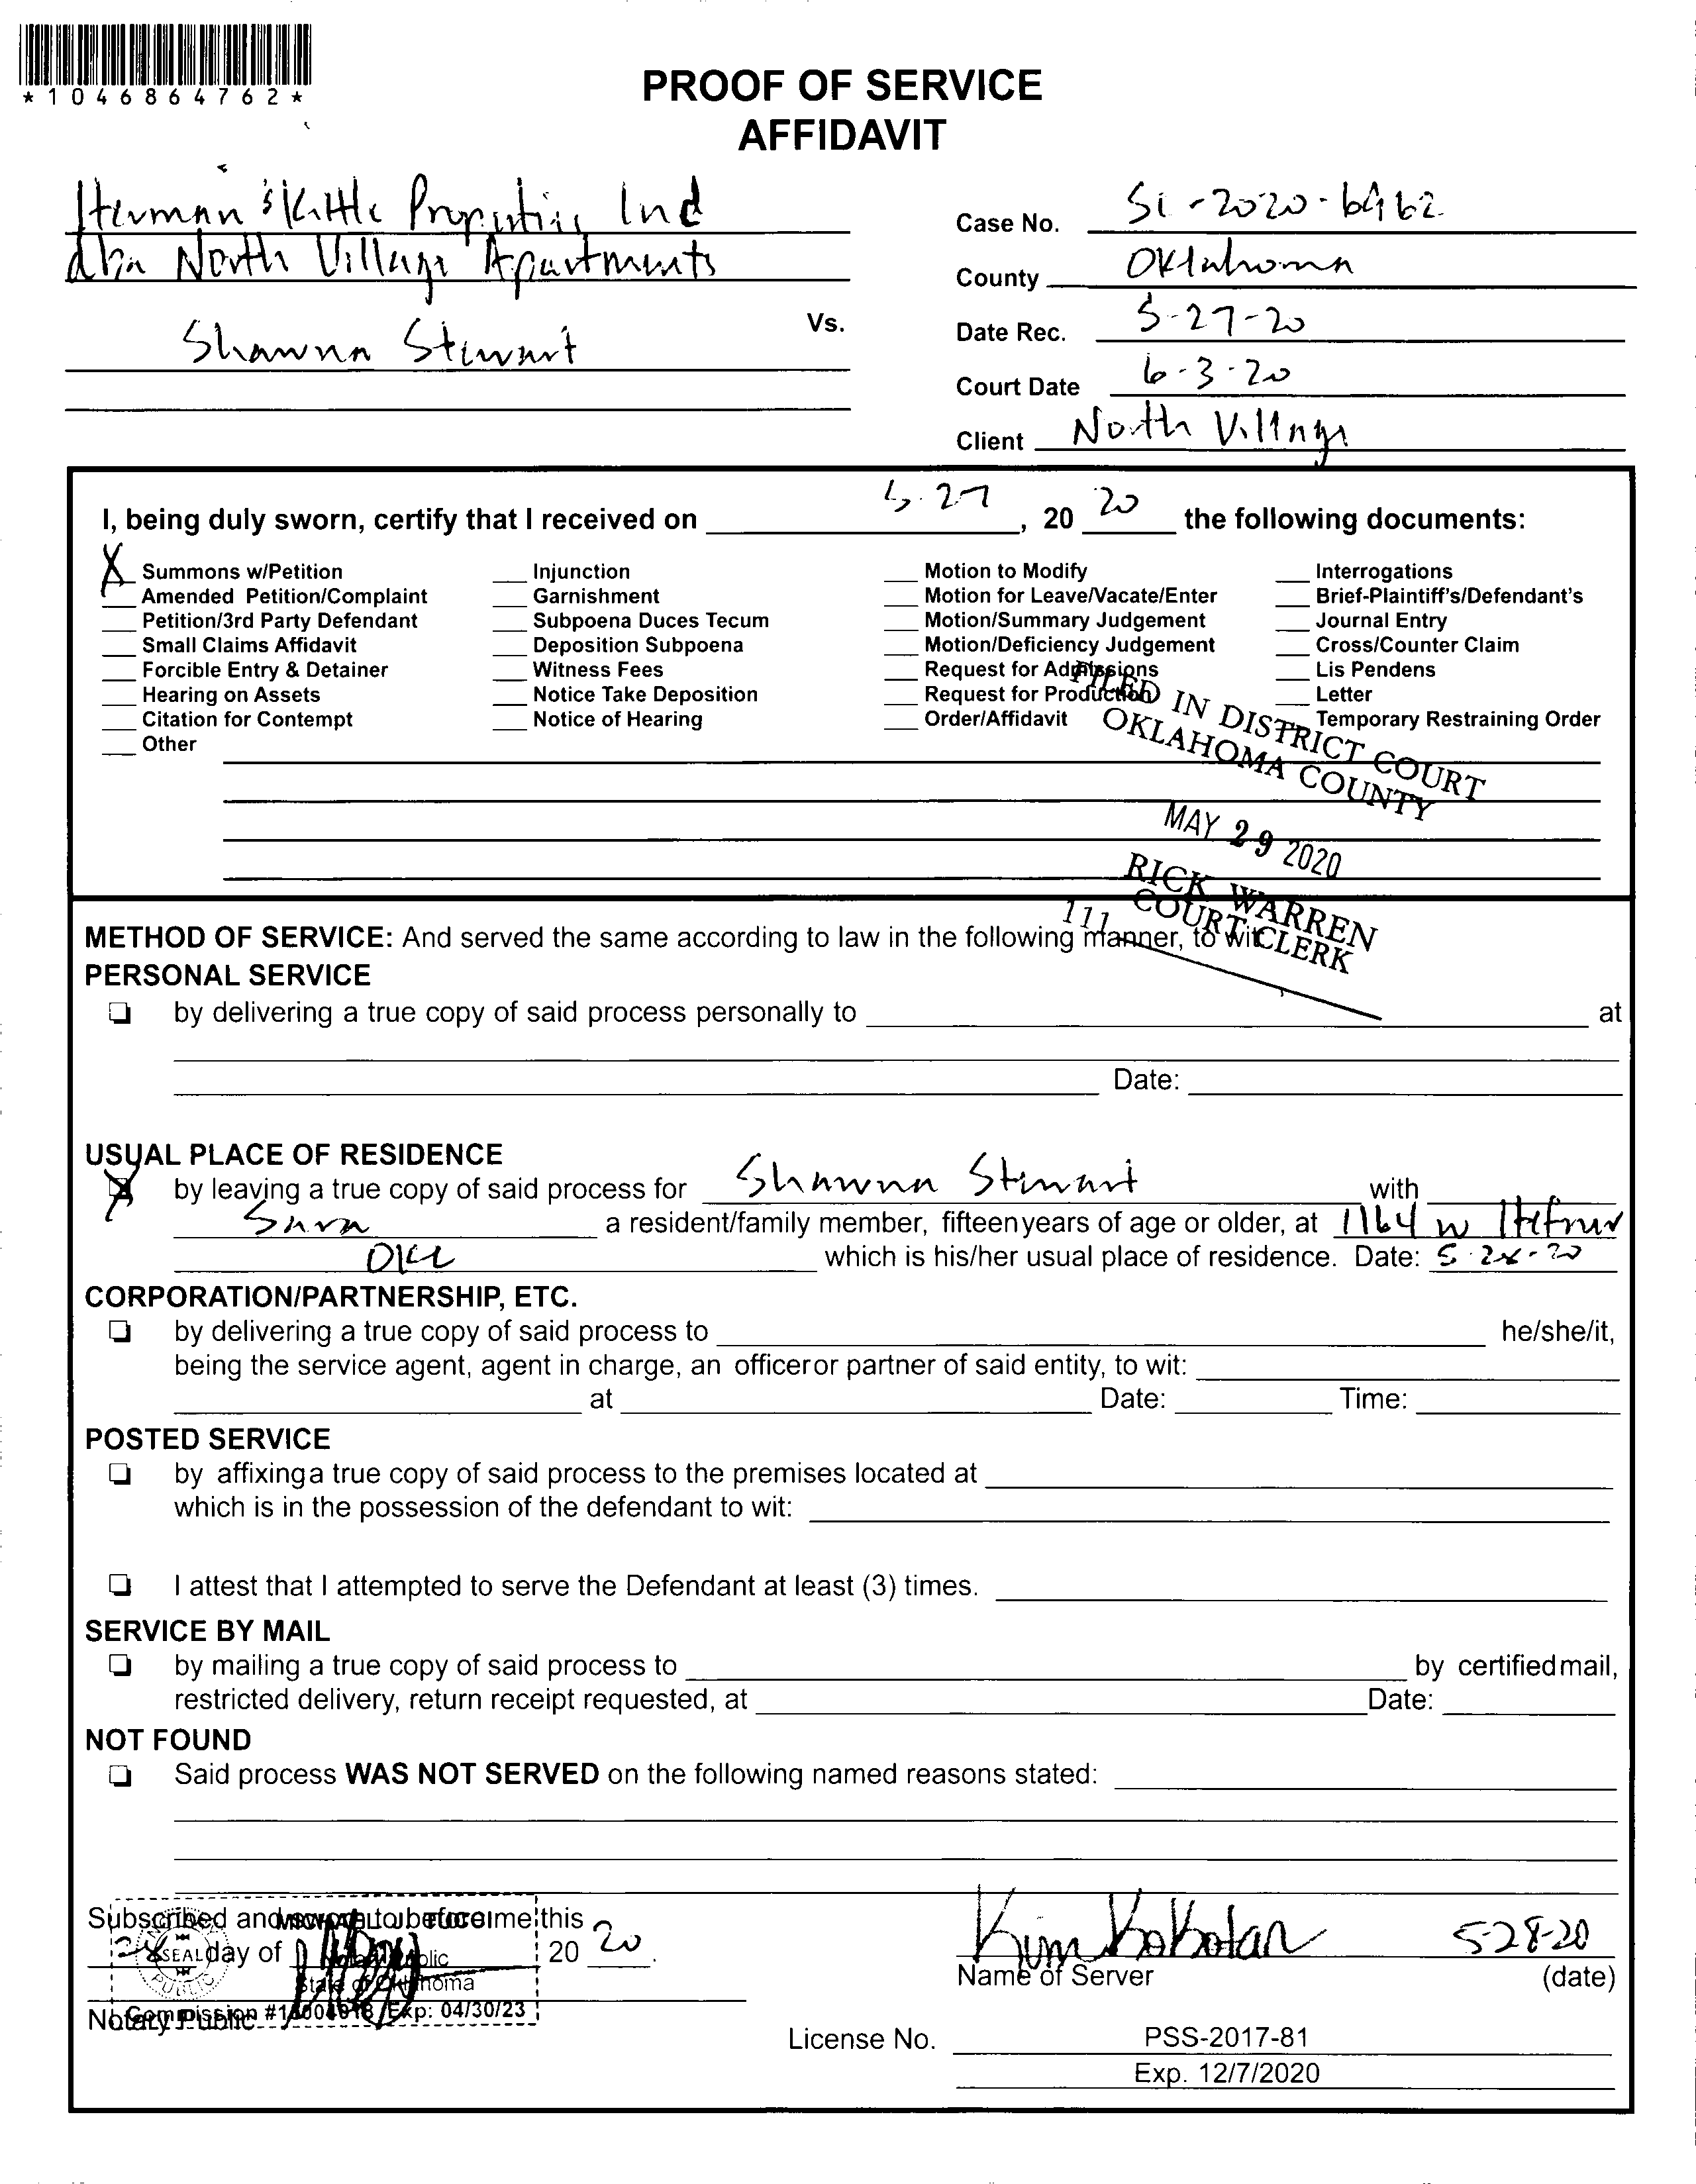 *1046864762*
PROOF OF SERVICE
AFFIDAVIT
Herman & Kittle Properties Ind
dba North Village Apartments
Vs.
Shawna Stewart
Case No. SC-2020-6962
County Oklahoma
Date Rec. 5-27-20
Court Date 6-3-20
Client North Village
I, being duly sworn, certify that I received on 5-27, 20 20 the following documents:
X Summons w/Petition
Amended Petition/Complaint
Petition/3rd Party Defendant
Small Claims Affidavit
Forcible Entry & Detainer
Hearing on Assets
Citation for Contempt
Other
Injunction
Garnishment
Subpoena Duces Tecum
Deposition Subpoena
Witness Fees
Notice Take Deposition
Notice of Hearing
Motion to Modify
Motion for Leave/Vacate/Enter
Motion/Summary Judgement
Motion/Deficiency Judgement
Request for Admissions
Request for Production
Order/Affidavit
Interrogations
Brief-Plaintiff's/Defendant's
Journal Entry
Cross/Counter Claim
Lis Pendens
Letter
Temporary Restraining Order
FILED IN DISTRICT COURT
OKLAHOMA COUNTY
MAY 29 2020
RICK WARREN
COURT CLERK
111
METHOD OF SERVICE: And served the same according to law in the following manner, to wit:
PERSONAL SERVICE
by delivering a true copy of said process personally to at
Date:
USUAL PLACE OF RESIDENCE
X by leaving a true copy of said process for Shawna Stewart with
Sara a resident/family member, fifteen years of age or older, at 1164 W Hefner
OKC which is his/her usual place of residence. Date: 5-28-20
CORPORATION/PARTNERSHIP, ETC.
by delivering a true copy of said process to he/she/it,
being the service agent, agent in charge, an officer or partner of said entity, to wit:
at Date: Time:
POSTED SERVICE
by affixing a true copy of said process to the premises located at
which is in the possession of the defendant to wit:
I attest that I attempted to serve the Defendant at least (3) times.
SERVICE BY MAIL
by mailing a true copy of said process to by certified mail,
restricted delivery, return receipt requested, at Date:
NOT FOUND
Said process WAS NOT SERVED on the following named reasons stated:
Subscribed and sworn to before me this
28 day of 20 20.
Notary Public
SEAL
PUBLIC
Notary Public
State of Oklahoma
Commission Exp: 04/30/23
Kim Kokotan 5-28-20
Name of Server (date)
License No. PSS-2017-81
Exp. 12/7/2020